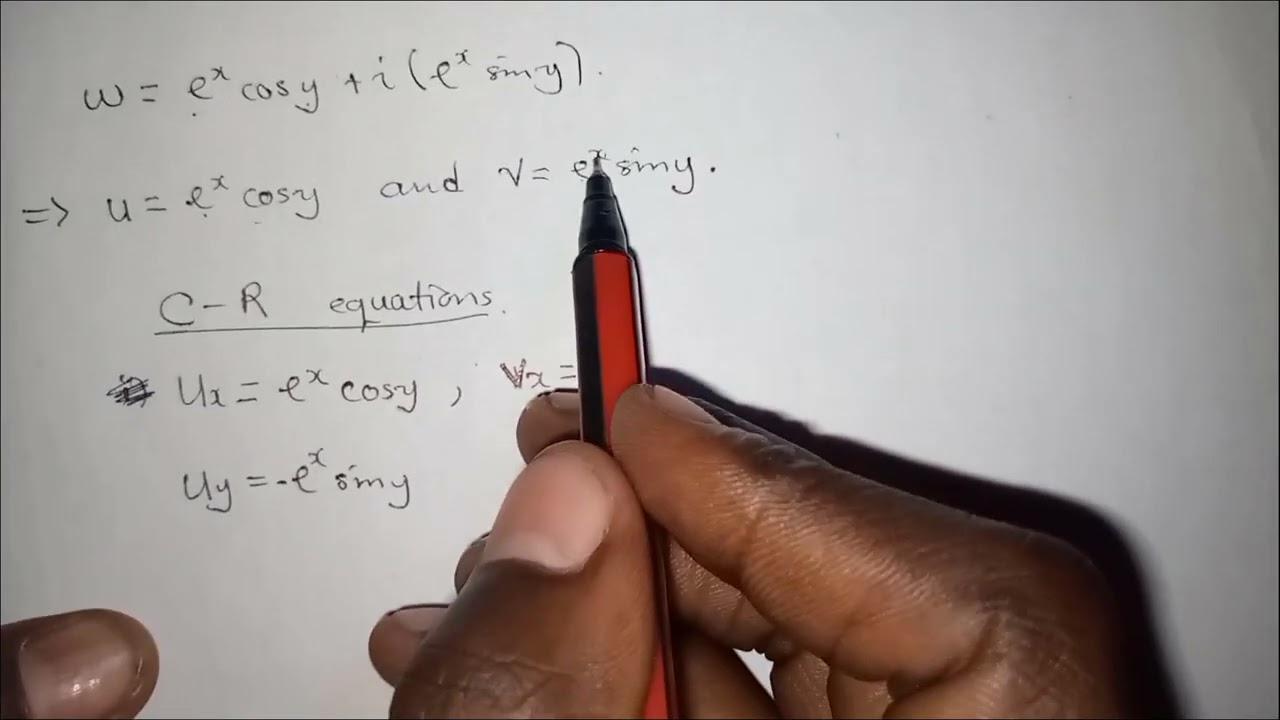 w = e^x cosy + i(e^x siny).
=> u = e^x cosy and v = e^x siny.
C-R equations.
Ux = e^x cosy, Vx =
Uy = -e^x siny